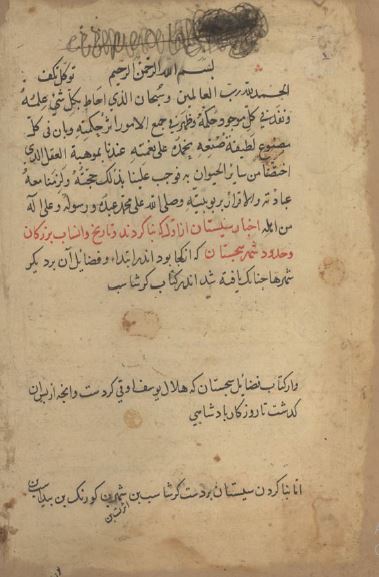 بسم الله الرحمن الرحیم توکل تکف
الحمد لله رب العالمین و سبحان الذی احاط بکل شیٔ علمه
و نفذ فی کل موجود حکمه و ظهر فی جمع الامور اثر حکمته و بان فی کل
مصنوع لطیفة صنعه نحمده علی نعمته عندنا بموهبة العقل الذی
اختصنا من سایر الحیوان به فوجب علینا بذلک حجته و لزمنا معه
عبادته والاقرار بربوبیته و صلی الله علی محمد عبده و رسوله و علی آله
من اهله اخبار سیستان از اول که بنا کردند و تاریخ و انساب بزرکان
و حدود شهر سجستان که از کجا بود اندر ابتداء و فضایل آن بر دیکر
شهرها چنانک یافته شد اندر کتاب کرشاسب
و از کتاب فضایل سجستان که هلال یوسف اوقی کردست و آنچه از پس آن
کذشت تا روزکار پادشاهی
اما بنا کردن سیستان بر دست کرشاسب بن
اثرت بن
شهر بن کورنک بن بیداسب